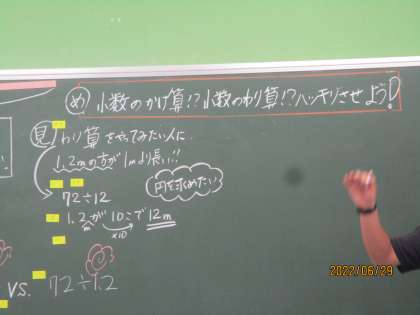 め 小数のかけ算!?小数のわり算!?ハッキリさせよう!
見 わり算をやってみたい人に
1.2mの方が1mより長い!!
円を求めたい
72÷12
1.2が10こで12m
m ×10
vs. 72÷1.2
2022/06/29